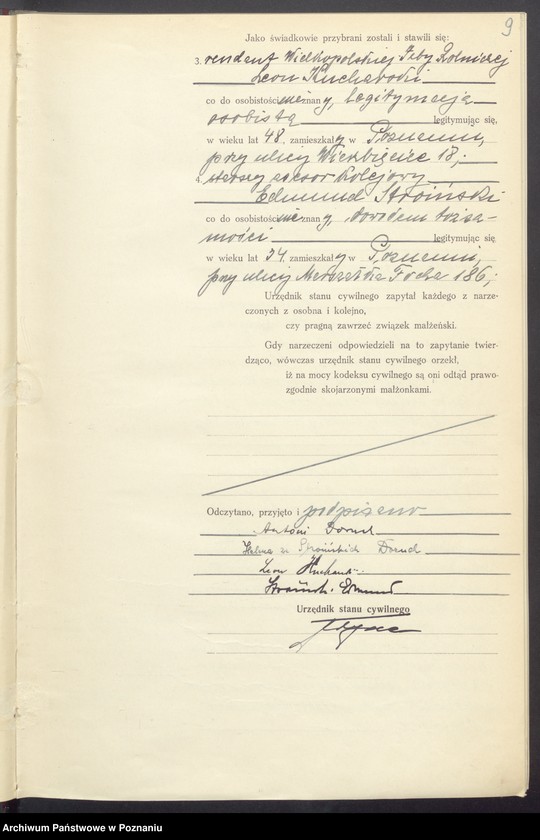 9
Jako świadkowie przybrani zostali i stawili się:
3. rendant Wielkopolskiej Izby Rolniczej
Leon Kucharski
co do osobistości nieznany, legitymacją
osobistą legitymując się,
w wieku lat 48, zamieszkały w Poznaniu,
przy ulicy Wierzbięcice 18;
4. starszy asesor kolejowy
Edmund Stroiński
co do osobistości nieznany, dowodem tożsa-
mości legitymując się
w wieku lat 34, zamieszkały w Poznaniu,
przy ulicy Marszałka Focha 186;
Urzędnik stanu cywilnego zapytał każdego z narze-
czonych z osobna i kolejno,
czy pragną zawrzeć związek małżeński.
Gdy narzeczeni odpowiedzieli na to zapytanie twier-
dząco, wówczas urzędnik stanu cywilnego orzekł,
iż na mocy kodeksu cywilnego są oni odtąd prawo-
zgodnie skojarzonymi małżonkami.
Odczytano, przyjęto i podpisano
Antoni Dorsch
z Stroińskich Dorsch
Leon Kucharski
Stroiński Edmund
Urzędnik stanu cywilnego
Archiwum Państwowe w Poznaniu